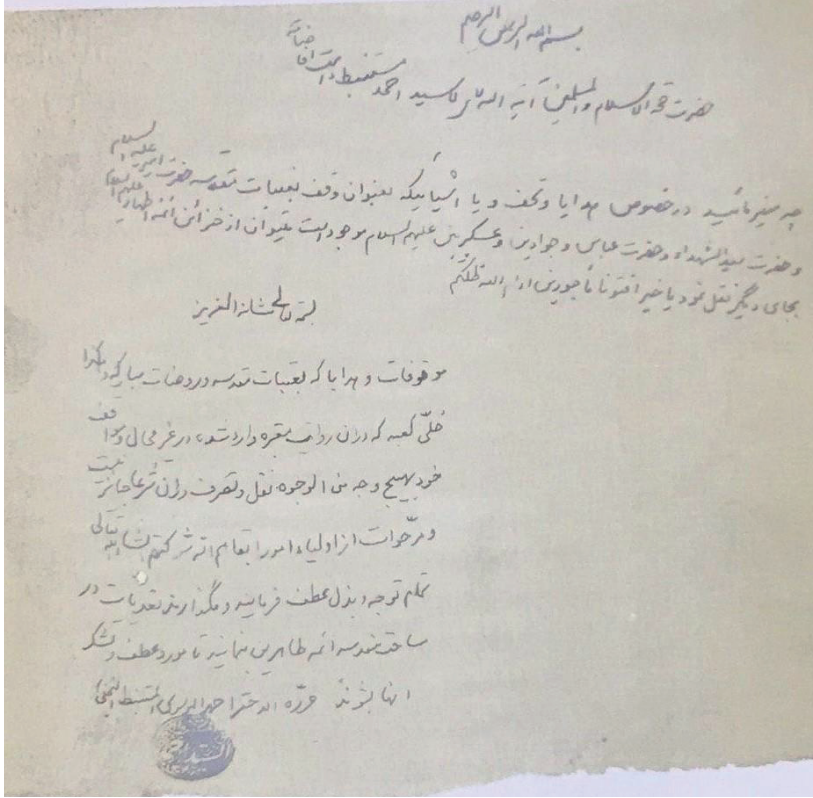 بسم الله الرحمن الرحیم
حضرت حجة الاسلام والمسلمین آیة الله آقای سید احمد مستنبط دامت افاضاته
چه میفرمائید در خصوص هدایا وتحف و یا اشیائیکه بعنوان وقف بعتبات مقدسه حضرت امیر علیه السلام
و حضرت سیدالشهداء وحضرت عباس و جوادین وعسکریین علیهم السلام موجود است میتوان از خزائن ائمه اطهار علیهم السلام
بجای دیگر نقل نمود یا خیر افتونا مأجورین ادام الله ظلکم
بسمه تعالی شانه العزیز
موقوفات و هدایا که بعتبات مقدسه و روضات مبارکه و کذا
حُلّی کعبه که در آن وارد شده در غیر محال وقف
خود بهیچ وجه من الوجوه نقل وتصرف در آن شرعا جائز نیست
و مرجوات از اولیاء امور انشاء الله تعالی
تمام توجه و بذل عطف فرمایند و نگذارند تعدیات در
ساحت مقدسه ائمه طاهرین بنمایند تا مورد عطف و تشکر
آنها بشوند حرره الاحقر احمد الموسوی المستنبط